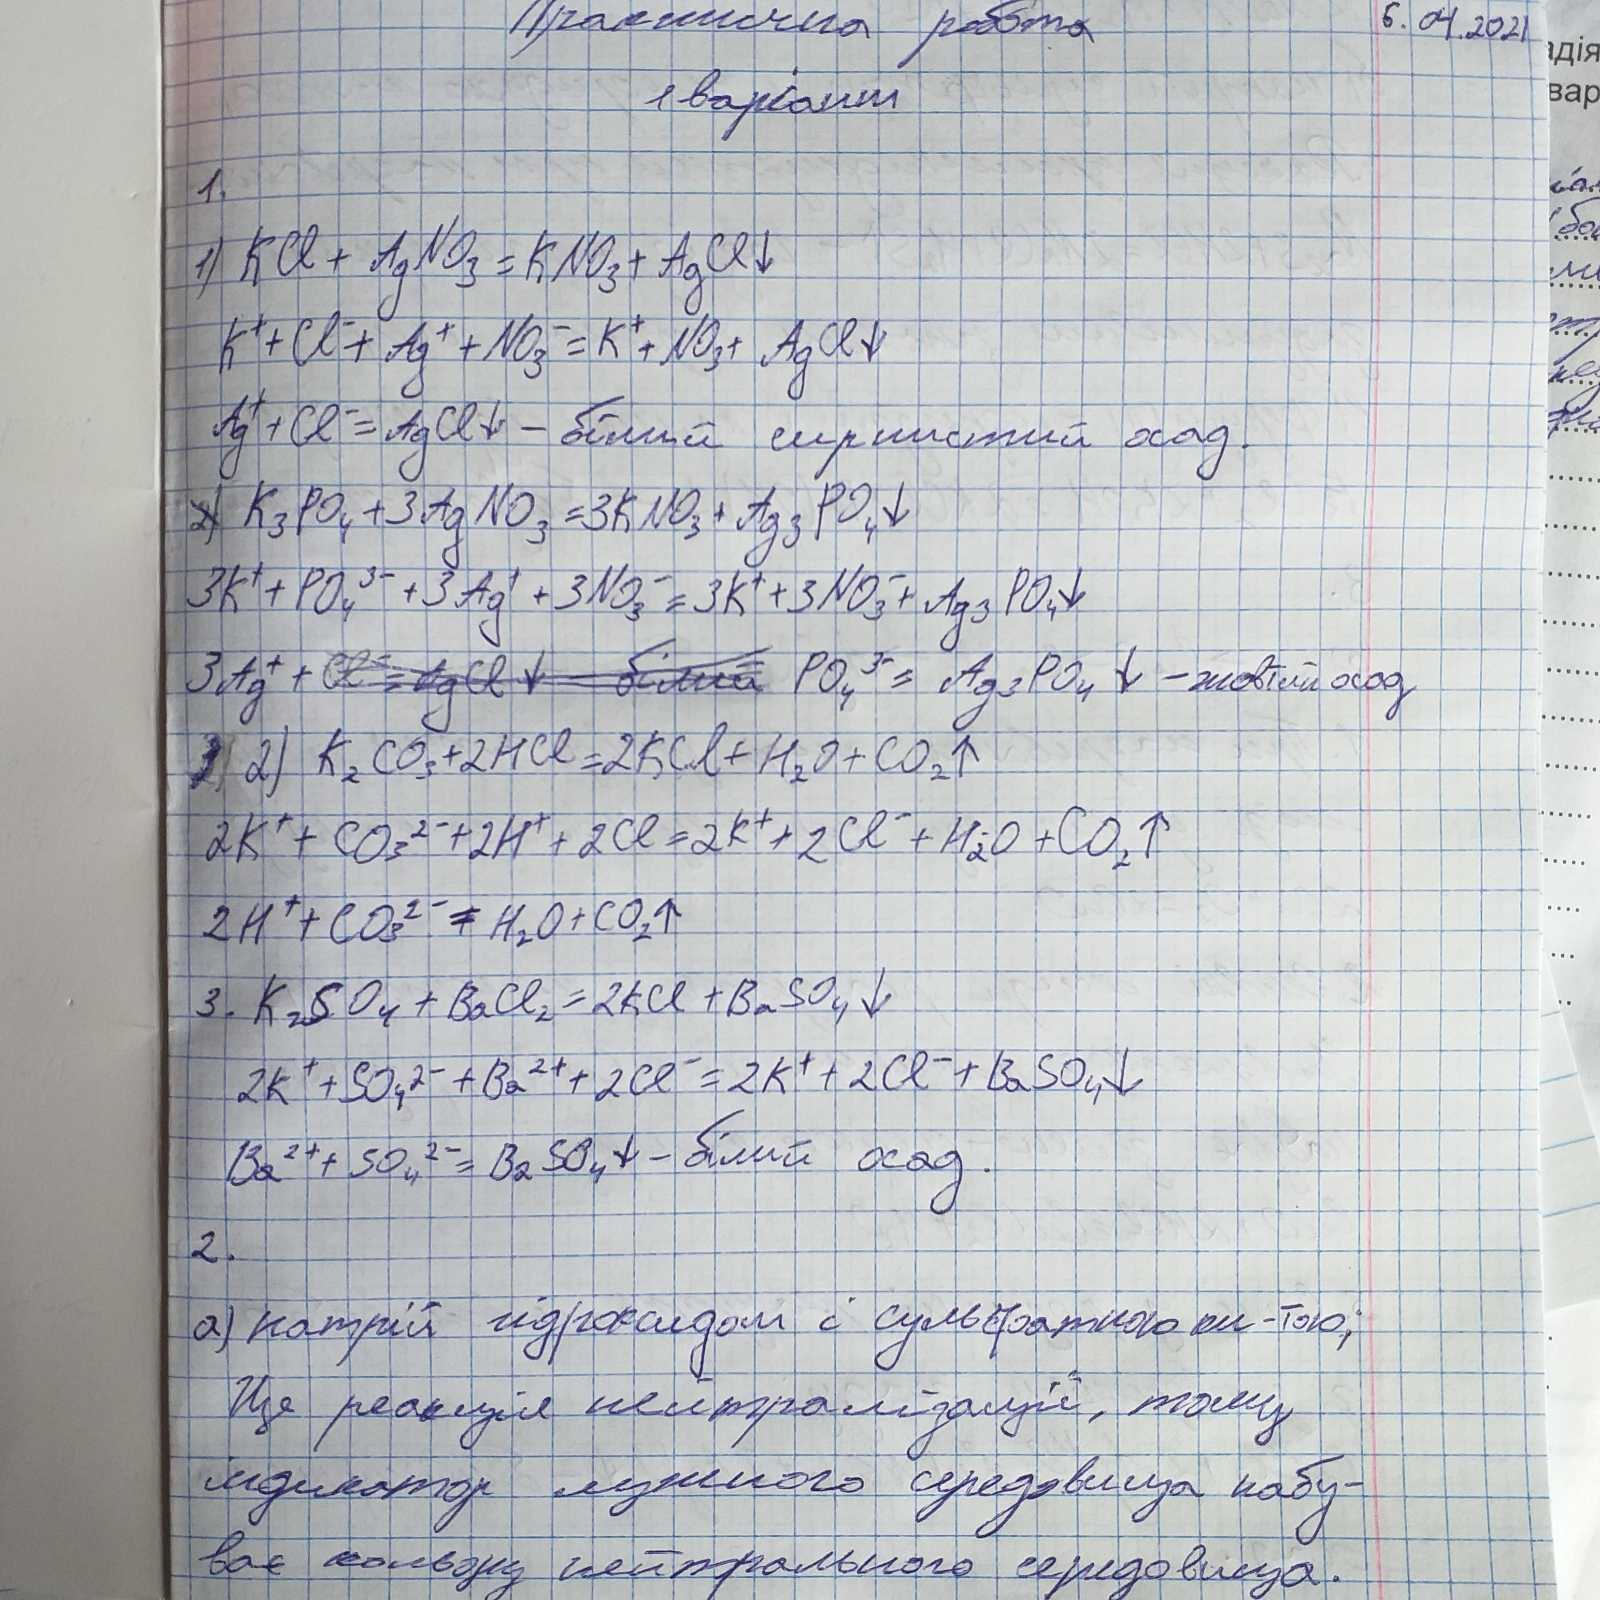 Практична робота 6.04.2021
1 варіант
1.
1) KCl + AgNO₃ = KNO₃ + AgCl↓
K⁺ + Cl⁻ + Ag⁺ + NO₃⁻ = K⁺ + NO₃ + AgCl↓
Ag⁺ + Cl⁻ = AgCl↓ – білий сирнистий осад.
2) K₃PO₄ + 3AgNO₃ = 3KNO₃ + Ag₃PO₄↓
3K⁺ + PO₄³⁻ + 3Ag⁺ + 3NO₃⁻ = 3K⁺ + 3NO₃⁻ + Ag₃PO₄↓
3Ag⁺ + Cl⁻ = AgCl↓ – білий PO₄³⁻ = Ag₃PO₄↓ – жовтий осад
2) K₂CO₃ + 2HCl = 2KCl + H₂O + CO₂↑
2K⁺ + CO₃²⁻ + 2H⁺ + 2Cl = 2K⁺ + 2Cl⁻ + H₂O + CO₂↑
2H⁺ + CO₃²⁻ = H₂O + CO₂↑
3. K₂SO₄ + BaCl₂ = 2KCl + BaSO₄↓
2K⁺ + SO₄²⁻ + Ba²⁺ + 2Cl⁻ = 2K⁺ + 2Cl⁻ + BaSO₄↓
Ba²⁺ + SO₄²⁻ = BaSO₄↓ – білий осад.
2.
а) натрій гідроксидом і сульфатною ки-тою;
Це реакція нейтралізації, тому
індикатор лужного середовища набу-
ває кольору нейтрального середовища.
адія
вар